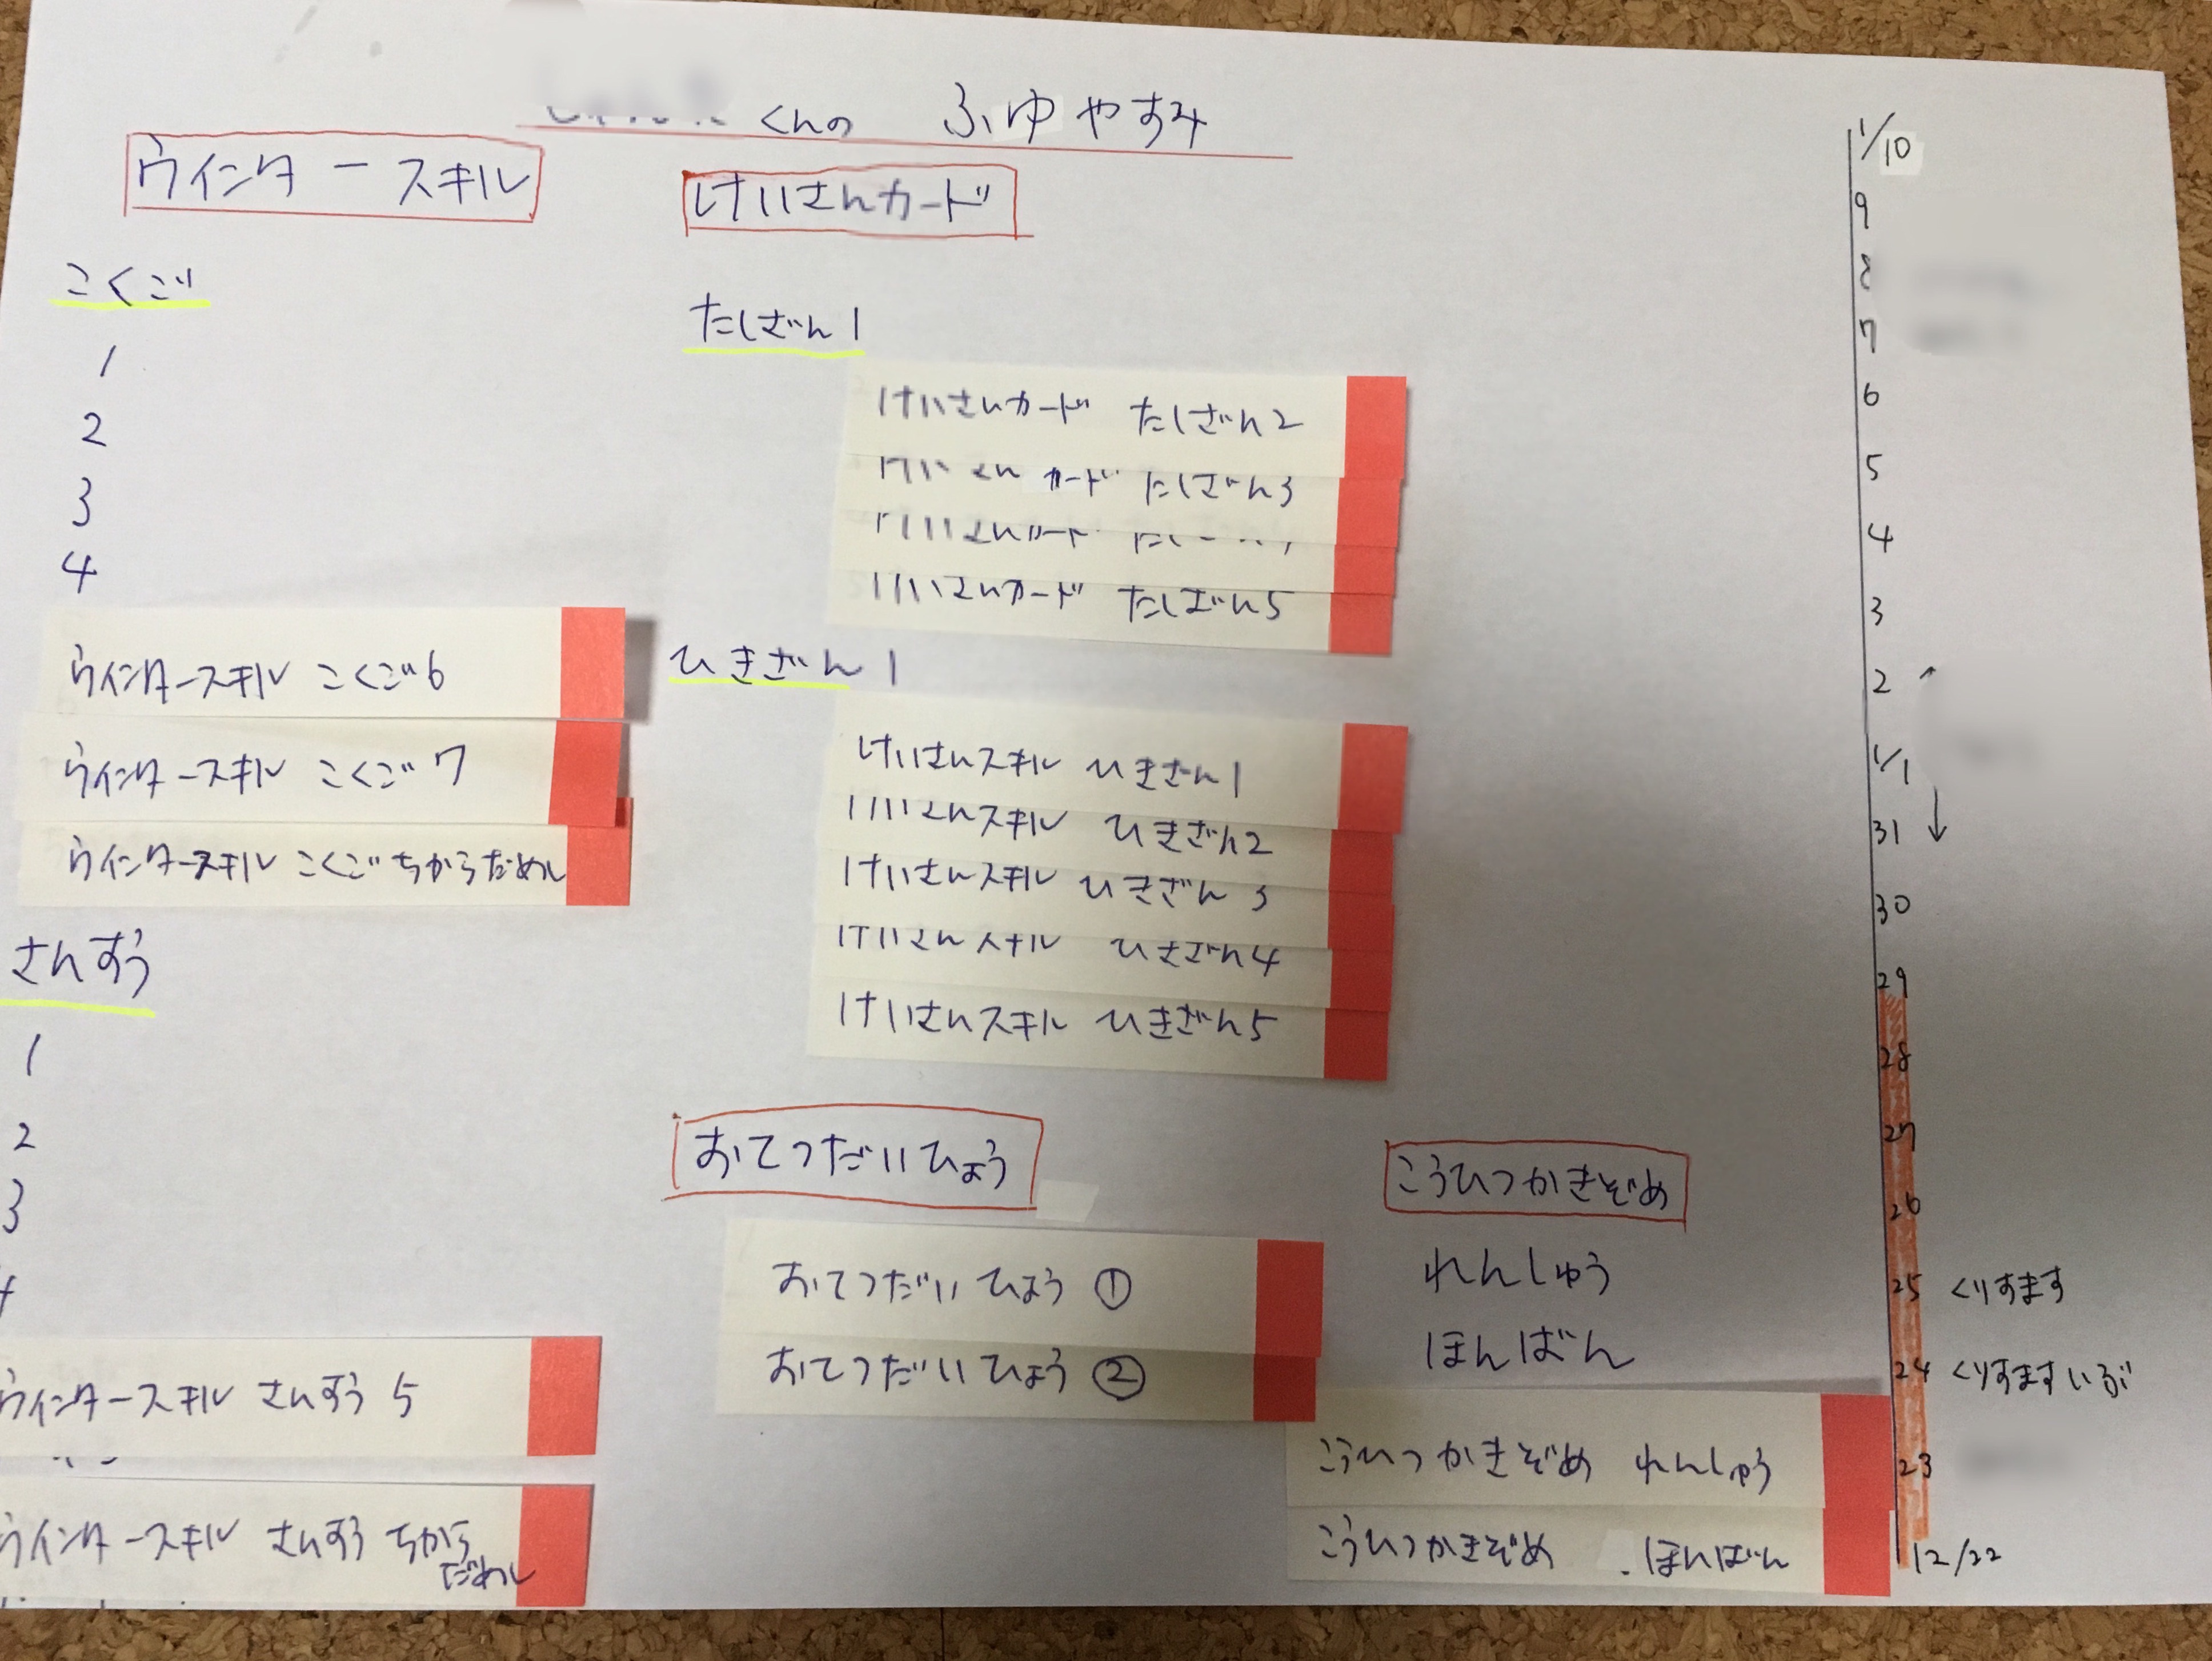 くんの ふゆやすみ
ウインタースキル
こくご
1
2
3
4
ウインタースキル こくご6
ウインタースキル こくご7
ウインタースキル こくごちからだめし
さんすう
1
2
3
ウインタースキル さんすう 5
ウインタースキル さんすう ちから
だめし
けいさんカード
たしざん1
けいさんカード たしざん2
けいさんカード たしざん3
けいさんカード
けいさんカード たしざん5
ひきざん1
けいさんスキル ひきざん1
けいさんスキル ひきざん2
けいさんスキル ひきざん3
けいさんスキル ひきざん4
けいさんスキル ひきざん5
おてつだいひょう
おてつだいひょう①
おてつだいひょう②
こうひつかきぞめ
れんしゅう
ほんばん
こうひつかきぞめ れんしゅう
こうひつかきぞめ ほんばん
1/10
9
8
7
6
5
4
3
2
1/1
31
30
29
28
27
26
25 くりすます
24 くりすますいぶ
23
12/22